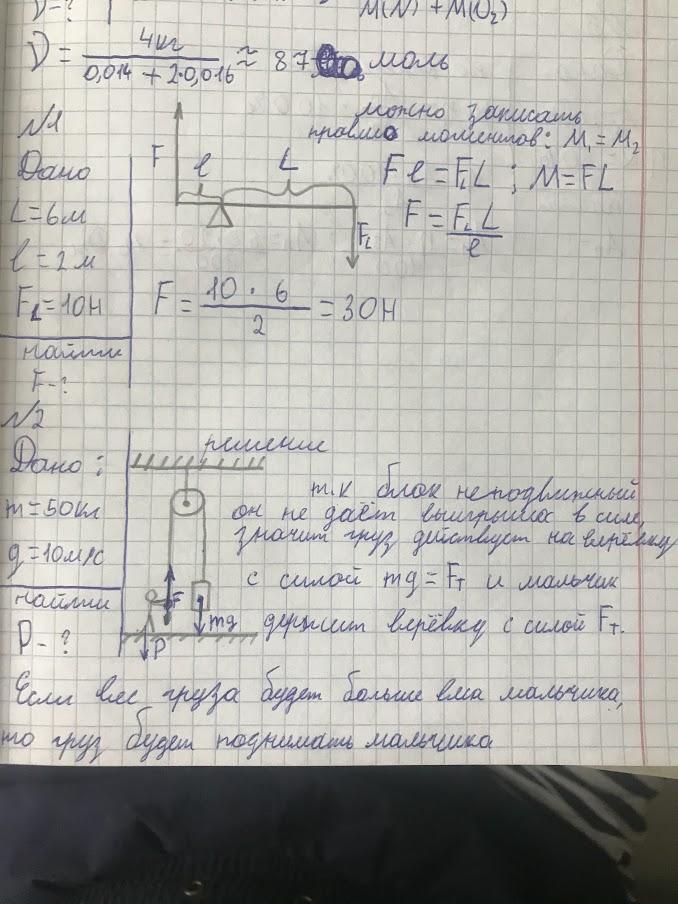 ν-?
M(N) + M(O₂)
ν = 4кг / 0,014 + 2·0,016 ≈ 87 моль
можно записать
правило моментов: M₁ = M₂
N1
Дано
L=6м
l=2м
F_L=10Н
найти
F-?
F
l
L
F_L
Fl = F_L L ; M=FL
F = F_L L / l
F = 10 · 6 / 2 = 30Н
N2
Дано:
m=50кг
g=10м/с
найти
P-?
решение
F
mg
P
т.к блок неподвижный
он не даёт выигрыша в силе,
значит груз действует на верёвку
с силой mg = F_T и мальчик
держит верёвку с силой F_T.
Если вес груза будет больше веса мальчика,
то груз будет поднимать мальчика